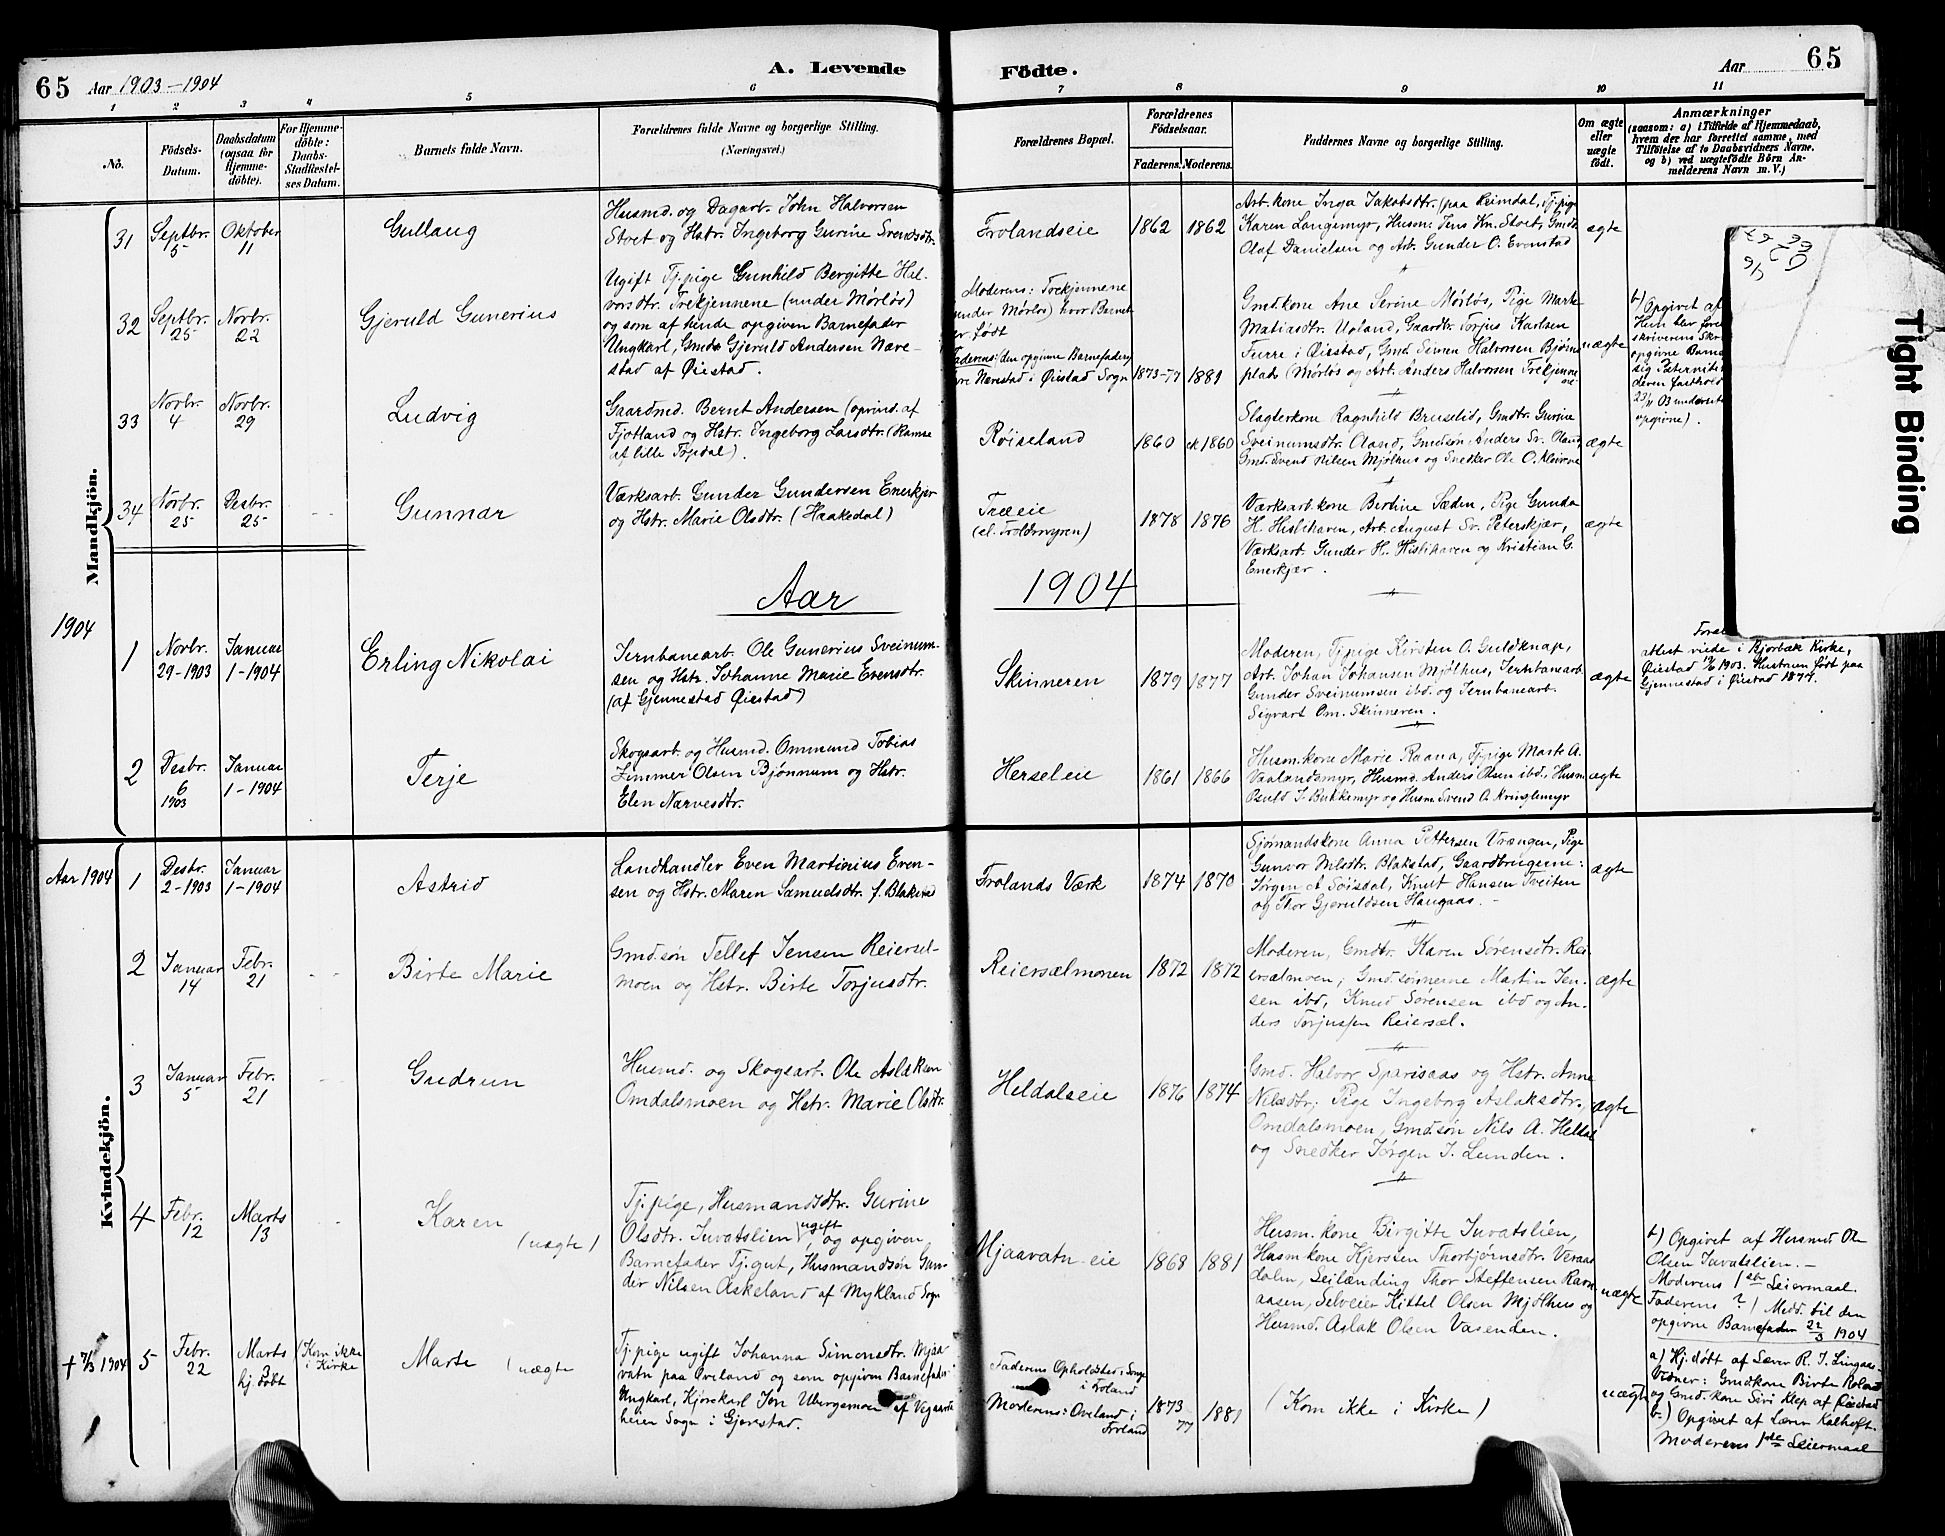 65 Aar 1903–1904
A. Levende
Födte.
Aar
65
1 2 3 4 5 6 7 8 9 10 11
No.
Födsels-
Datum.
Daabsdatum
(ogsaa for
Hjemme-
döbte).
For Hjemme-
döbte:
Daabs-
Stadfæstel-
ses Datum.
Barnets fulde Navn.
Forældrenes fulde Navne og borgerlige Stilling.
(Næringsvei.)
Forældrenes Bopæl.
Forældrenes
Födselsaar.
Faderens. Moderens.
Faddernes Navne og borgerlige Stilling.
Om ægte
eller
uægte
födt.
Anmærkninger
(saasom: a) i Tilfælde af Hjemmedaab,
hvem der har forrettet samme, med
Tilföielse af to Daabsvidners Navne.
og b) ved uægtefödte Börn An-
melderens Navn m. V.)
Mandkjön.
31
Septbr.
5
Oktober
11
Gullaug
Husmd. og Dagarb. John Halvorsen
Stoet og Hstr. Ingeborg Gurine Svendsdtr.
Frolandseie
1862 1862
Arb.kone Inga Jakobsdtr. (paa Reimdal, Tj.pige
Karen Langsmyr, Husmd. Jens Kn. Stoet, Gmd.
Olaf Danielsen og Arb. Gunder O. Evenstad
ægte
32
Septbr.
25
Novbr.
22
Gjeruld Gunerius
Ugift Tj.pige Gunhild Bergitte Hal-
vorsdtr. Trekjennene (under Mørløs)
og som af hende opgiven Barnefader
Ungkarl, Gmds. Gjeruld Andersen Næve-
stad af Øiestad.
Moderens: Trekjennene
under Mørløs) hvor Barnet
er født
Faderens: (den opgivne Barnefaders)
Nævestad i Øiestad Sogn
1873–77 1881
Gmd.kone Ane Serine Mørløs, Pige Marte
Matiasdtr. Uoland, Gaardtr. Torjus Karlsen
Furre i Øiestad, Gmd. Simen Halvorsen Bjørne
plads (Mørløs og Arb. Anders Halvorsen Trekjenne
ne
uægte
b) Opgivet af
Hun blev fore
skriverens Skr
opgivne Barne
sig Paternitet
deren fasthold
23/11 03 underret
opgivne).
33
Novbr.
4
Novbr.
29
Ludvig
Gaardmd. Bernt Andersen (oprind. af
Fjotland og Hstr. Ingeborg Larsdtr. (Ramse
af lille Topdal).
Røiseland
1860 1860
Slagterkone Ragnhild Bruselid, Gmdtr. Gurine
Sveinumsdtr. Oland, Gmdsøn Anders Sv. Oland
Gmd. Svend Nilsen Mjølhus og Snedker Ole O. Kleivene
ægte
34
Novbr.
25
Desbr.
25
Gunnar
Værksarb. Gunder Gundersen Enerkjær
og Hstr. Marie Olsdtr. (Haakedal)
Træeie
(el. Froldsmyren)
1878 1876
Værksarb.kone Bertine Sæden, Pige Gunda
H. Hislihaven, Arb. August Sv. Peterskjær,
Værksarb. Gunder H. Hislihaven og Kristian G.
Enerkjær.
ægte
Aar 1904
1904
1
Novbr.
29-1903
Januar
1-1904
Erling Nikolai
Jernbanearb. Ole Gunerius Sveinum-
sen og Hstr. Johanne Marie Evensdtr.
(af Gjennestad Øiestad)
Skinneren
1879 1877
Moderen, Tj.pige Kirsten O. Guldknap,
Arb. Johan Johansen Mjølhus, Jernbanearb
Gunder Sveinumsen ibd. og Jernbanearb.
Sigvart Om. Skinneren.
ægte
Foræl
attest viede i Bjorbæk Kirke,
Øiestad 1903. Hustrun født paa
Gjennestad i Øiestad 1877.
2
Desbr.
6
1903
Januar
1-1904
Terje
Skogsarb. og Husmd. Ommund Tobias
Zimmer Olsen Bjønnum og Hstr.
Elen Narvesdtr.
Herseleie
1861 1866
Husm.kone Marie Raana, Tj.pige Marte A.
Vaalandsmyr, Husmd. Anders Olsen ibd., Husm
Osuld J. Bukkemyr og Husm. Svend A. Kringlemyr
ægte
Kvindekjön.
Aar 1904
1
Desbr.
2-1903
Januar
1-1904
Astrid
Landhandler Even Martinius Even-
sen og Hstr. Maren Samuelsdtr. f. Blakstad
Frolands Værk
1874 1870
Sjømandskone Anna Pettersen Vrængen, Pige
Gunvor Nilsdtr. Blakstad, Gaardbrugerne:
Jørgen A. Soisdal, Knut Hansen Tveiten
og Thor Gjeruldsen Haugaas.
ægte
2
Januar
14
Febr.
21
Birte Marie
Gmd.søn Tellef Jensen Reiersel-
moen og Hstr. Birte Torjusdtr.
Reierselmonen
1872 1872
Moderen, Gmdtr. Karen Sørensdtr. Rei-
erselmoen, Gmd.sønnerne Martin Jen-
sen ibd, Knud Sørensen ibd og An-
ders Torjussen Reiersæl.
ægte
3
Januar
5
Febr.
21
Gudrun
Husmd. og Skogsarb. Ole Aslaksen
Omdalsmoen og Hstr. Marie Olsdtr.
Heldaleeie
1876 1874
Gmd. Halvor Sparisaas og Hstr. Anne
Nilsdtr., Pige Ingeborg Aslaksdtr.
Omdalsmoen, Gmd.søn Nils A. Heldal
og Snedker Jørgen J. Lunden.
ægte
4
Febr.
12
Marts
13
Karen
(uægte)
Tj.pige, Husmandsdtr. Gurine
Olsdtr. Juvatslien, ugift og opgiven
Barnefader Tj.gut, Husmandsøn Gun-
der Nilsen Askeland af Mykland Sogn
Mjaavatn-eie
1868 1881
Husm.kone Birgitte Juvatslien,
Husm.kone Kjersten Thorbjørnsdtr. Veraas
dalen, Seilænding Thor Steffensen Ravn
aasen, Selveier Kittel Olsen Mjølhus og
Husmd. Aslak Olsen Vasenden.
uægte
b) Opgivet af Husmd Ole
Olsen Juvatslien.
Moderens 1ste Leiermaal.
Faderens ? / Medd. til den
opgivne Barnefader 22/3 1904
+ 7/3 1904
5
Febr.
22
Marts
2
hj. døbt
(Kom ikke
i Kirke
Marte
(uægte
Tj.pige ugift Johanna Simonsdtr. Mjaa
vatn paa Oveland og som opgiven Barnefader
Ungkarl, Kjørekarl Jon Ubergsmoen af Vegaards
heien Sogn i Gjerestad.
Faderens Opholdsted: Songe
i Froland
Moderens: Oveland i
Froland
1873–
77
1881
(Kom ikke i Kirke)
uægte
a) Hj. døbt af Lærer R. J. Lingaas
Vidner: Gmdkone Birte Roland
og Gmd.kone Siri Klep af Øiestad
b.) Opgivet af Lærer Kalhoft.
Moderens 1ste Leiermaal
Tight Binding